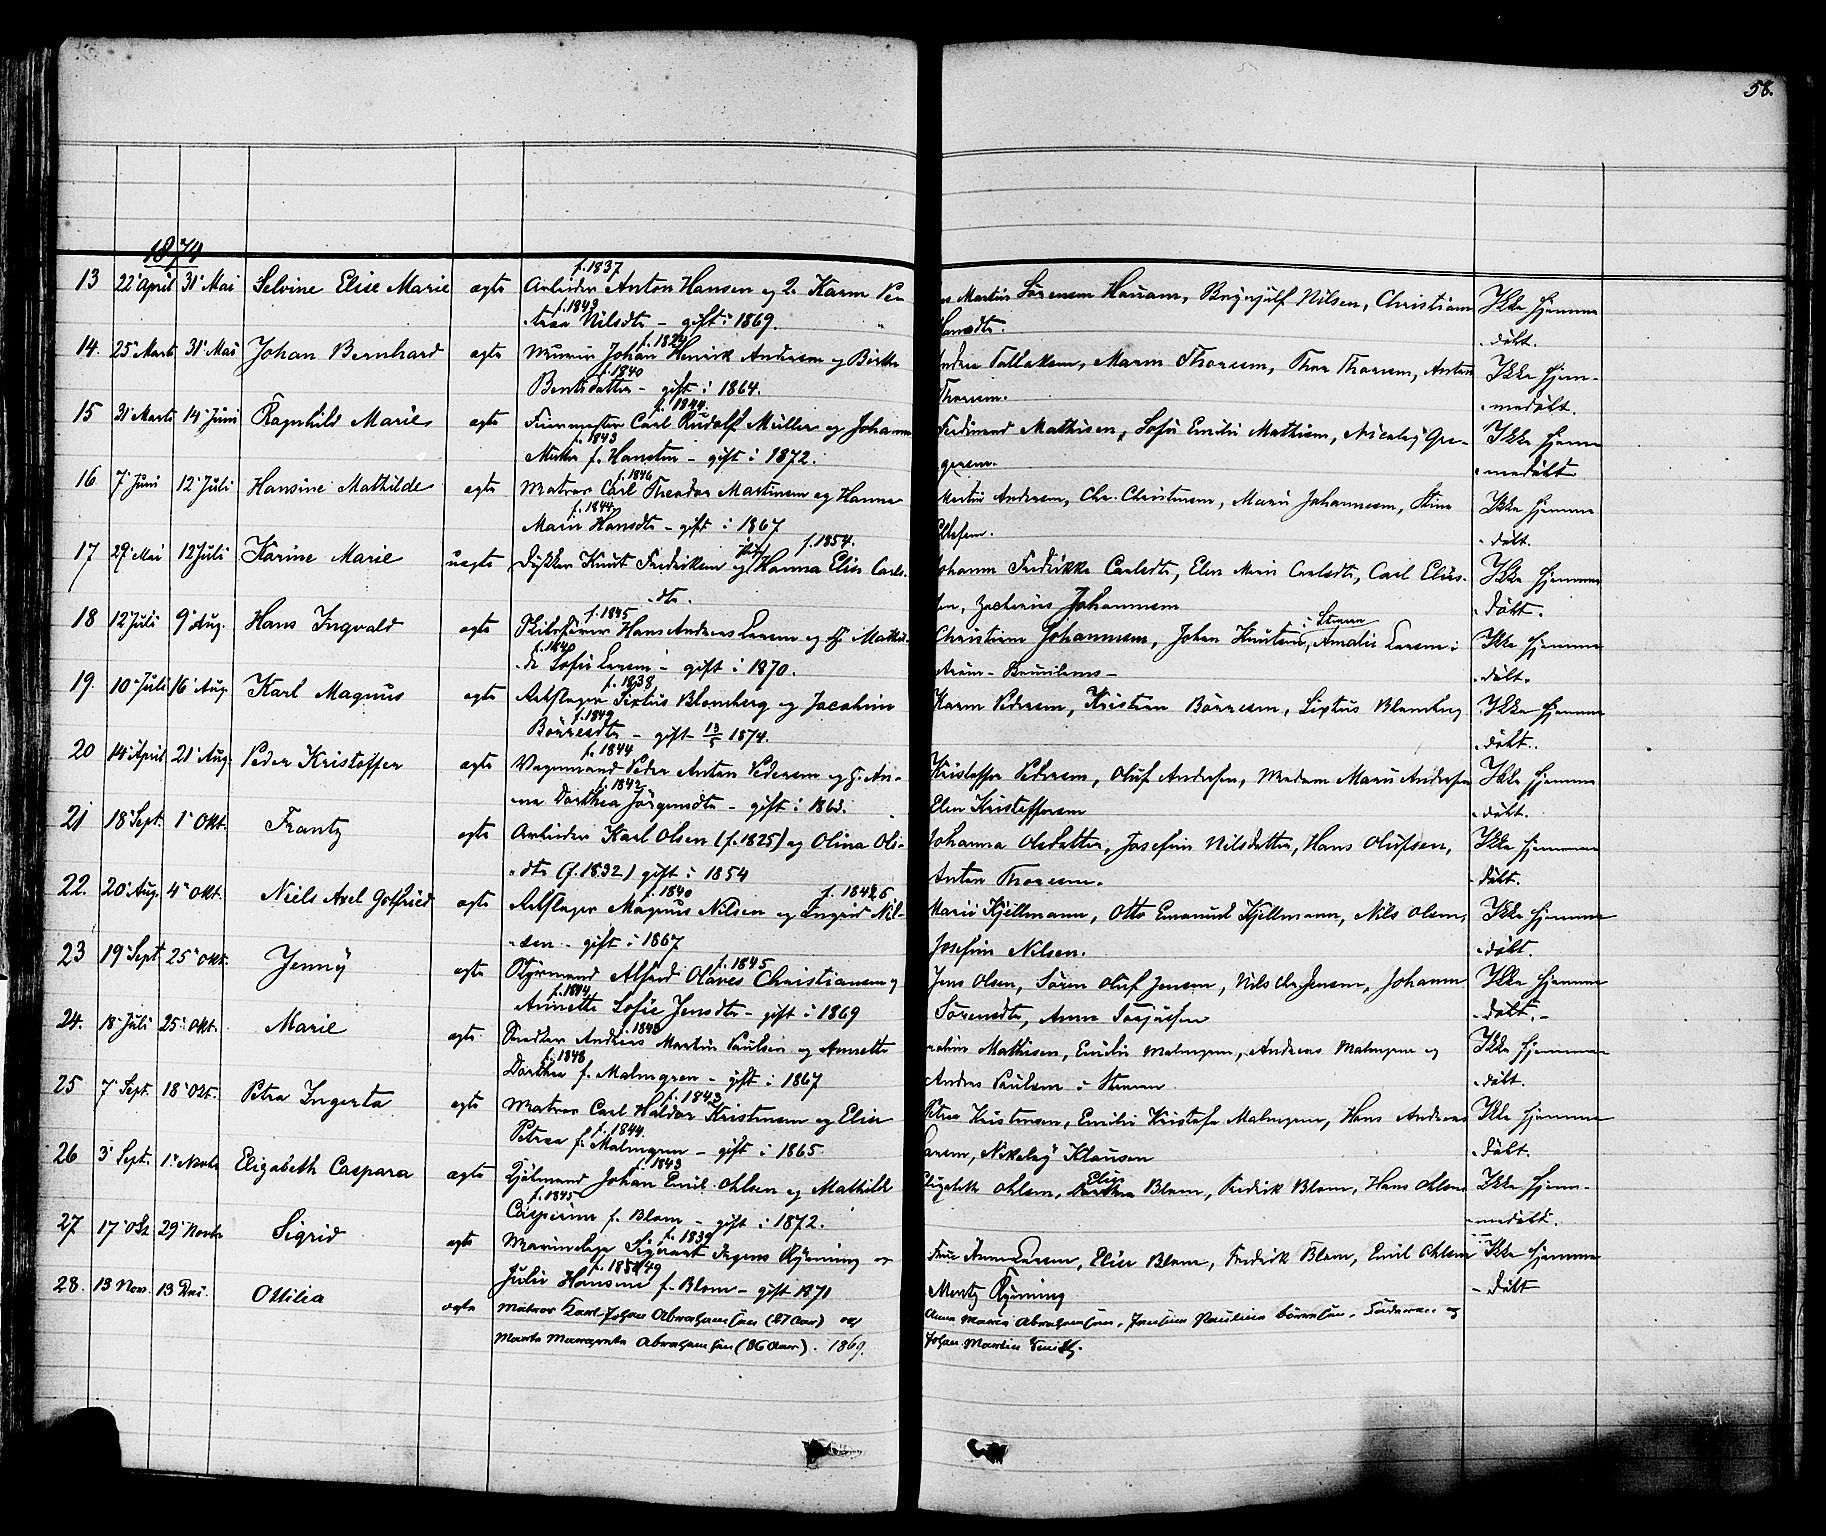 58.
1874
13 22' April 31' Mai Selvine Elise Marie ægte Arbeider Anton Hansen f. 1837 og Karen Pe-
trea Nilsdtr f. 1843 - gift i 1869.
Martin Sørensen, Brynjulf Nilsen, Christiane Ikke hjemme
Hansdtr. døbt.
14. 25' Marts 31' Mai Johan Bernhard ægte Murer Johan Henrik Andersen og Birthe
Bentsdatter f. 1840 - gift i 1864.
Maren Thoresen, Thor Thoresen, Anton Ikke hjem-
Thoresen. medøbt.
15 31' Marts 14' Juni Ragnhild Marie ægte Carl Rudolf Müller f. 1844. og Johanne
f. 1843 f. Hansen - gift i 1872.
Ferdinand Mathisen, Sofie Emilie Mathisen, Nicolay Gre- Ikke hjem
gersen. medøbt.
16 7' Juni 12' Juli Hansine Mathilde ægte Matros Carl Theodor Martinsen f. 1846 og Hanna
Marie Hansdtr f. 1844 - gift i 1867
Martin Andersen, Chr. Christensen, Maren Johannesen, Stine Ikke hjemme
Ellefsen. døbt.
17 29' Mai 12 Juli Karine Marie uægte Knut Fredriksen og Pige Hanna Elise Carls- f. 1854.
dtr.
Johanne Fredrikke Carlsdtr, Elen Marie Carlsdtr, Carl Elias- Ikke hjemme
sen, Zacharias Johannesen døbt.
18 12 Juli 9' Aug. Hans Ingvald ægte Skibsfører Hans Andreas Larsen f. 1845 og H. Mathil-
de Sofie Larsen f. 1840 - gift i 1870.
Christian Johannesen, Johan Knutsen, Amalie Larsen i Ikke hjemme
døbt.
19. 10' Juli 16' Aug. Karl Magnus ægte Rebslager Sixtus Blomberg f. 1838 og Jacobine
Børresdtr f. 1849 - gift 1874.
Karen Pedersen, Kristian Børresen, Sixtus Blomberg Ikke hjemme
døbt.
20 14' April 21' Aug. Peder Kristoffer ægte Vognmand Peder Anton Pedersen f. 1844 og H. An-
ne Dorthea Jørgensdtr f. 1842 - gift i 1863.
Kristoffer Pedersen, Oluf Andersen, Madam Maren Andersen Ikke hjemme
Elen Kristoffersen døbt.
21 18' Sept. 1' Okt. Frantz ægte Arbeider Karl Olsen (f. 1825) og Olina Ols-
dtr (f. 1832) gift i 1854
Johanna Olsdatter, Josefine Nilsdatter, Hans Olufsen, Ikke hjemme
Anton Thoresen. døbt.
22. 20' Aug. 4' Okt. Niels Axel Gotfried ægte Rebslager Magnus Nilsen f. 1840 og Ingrid Nil-
sen - gift i 1867
Marie Kjellmann, Otto Emanuel Kjellmann, Nils Olsen, Ikke hjemme
Josefine Nilsen. døbt.
23 19' Sept 25' Okt. Jenny ægte Styrmand Alfred Olaves Christiansen f. 1845 og
Annette Sofie Jensdtr f. 1844 - gift i 1869
Jens Olsen, Søren Oluf Jensen, Nils Chr. Jensen, Johanne Ikke hjemme
Sørensdtr, Anne døbt.
24. 18' Juli 25' Okt. Marie ægte Snedker Andreas Martin Paulsen og Annette
Dorthea f. Malmgren f. 1848 - gift i 1867
Mathisen, Emilie Malmgren, Andreas Malmgren og Ikke hjemme
Andrea Paulsen i døbt.
25 7' Sept. 18' Okt. Petra Ingerta ægte Matros Carl Haldor Kristensen f. 1843 og Elise
Petrea f. Malmgren f. 1844. - gift i 1865
Petrea Kristensen, Emilie Kristofa Malmgren, Hans Andreas Ikke hjemme
Larsen, Nikolay Klausen døbt.
26 3' Sept. 1' Novbr Elizabeth Caspara ægte Sjømand Johan Emil Ohlsen f. 1843 og Mathilde
Casperine f. Blom f. 1845 - gift i 1872.
Elizabeth Ohlsen, Elise Blom, Fredrik Blom, Hans Ohlsen Ikke hjem-
medøbt.
27 17' Okt 29' Novbr Sigrid ægte Sigvart Rynning f. 1839 og
Julie Hansine f. Blom - gift 1871
Frue Anne Larsen, Elise Blom, Fredrik Blom, Emil Ohlsen Ikke hjemme
Mentz Rynning døbt
28. 13 Nov. 13 Ottilia ægte Matros Karl Johan Abrahamsen (27 Aar) og
Marte Margrete Abrahamsen (26 Aar). 1869.
Anna Maria Abrahamsen, og
Johan Martin